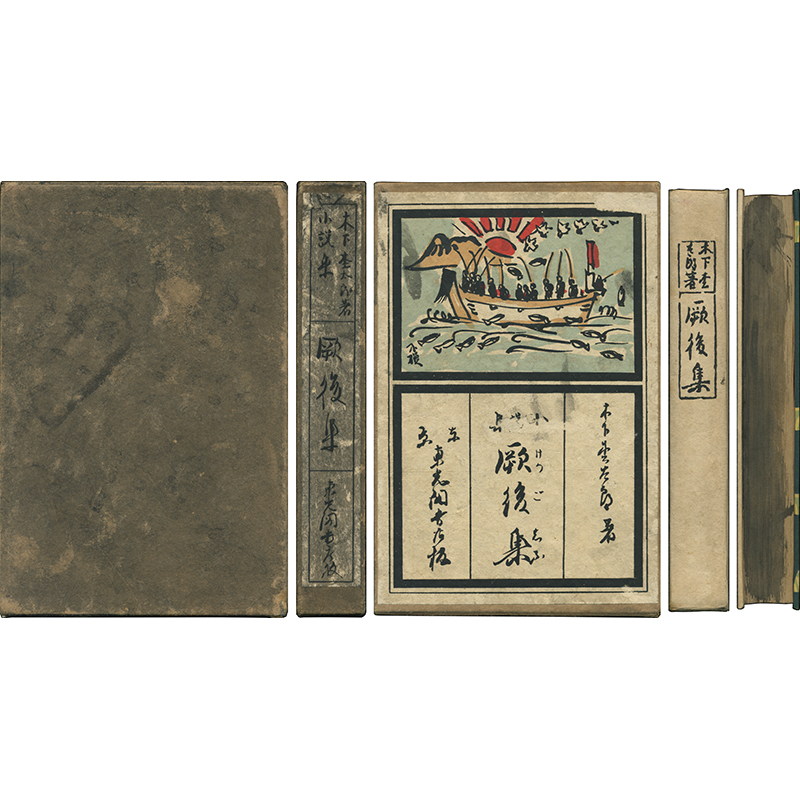 木下杢太郎著
小説集
厥後集
東光閣書店版
木下杢太郎著
小
厥後集
けつごしふ
東京
東光閣書店板
木下杢
太郎著
厥後集